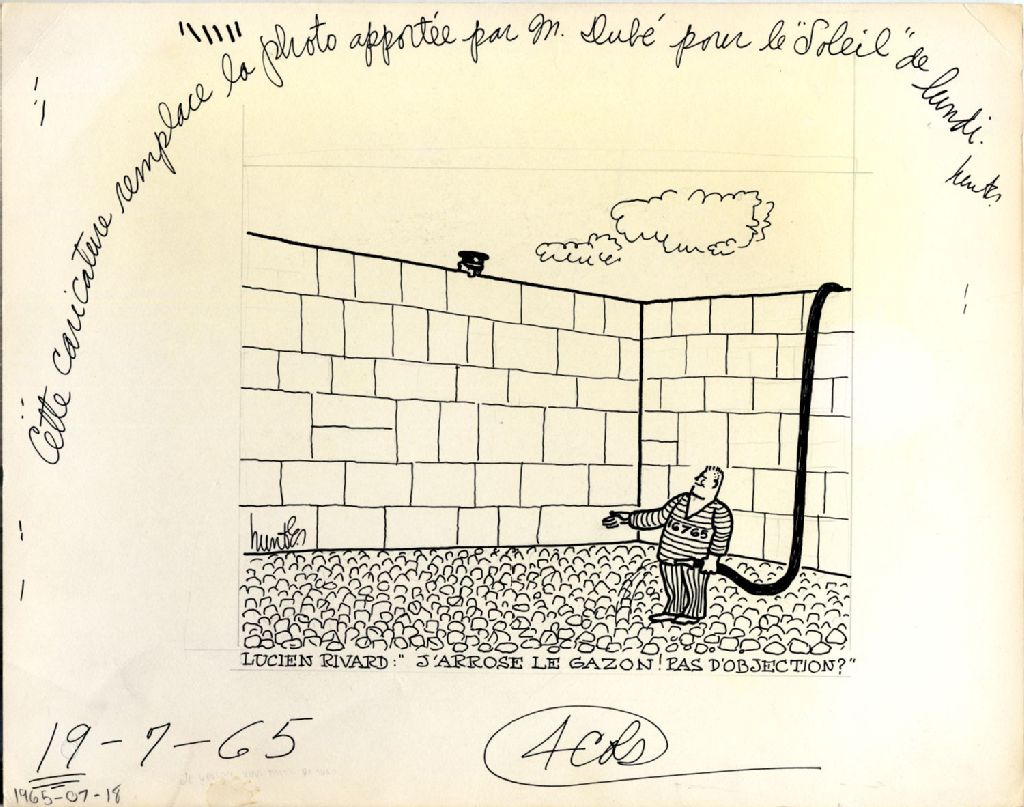 Cette caricature remplace la photo apportée par M. Dubé pour le "Soleil" de lundi.
hunter
16765
hunter
LUCIEN RIVARD: "J'ARROSE LE GAZON! PAS D'OBJECTION?"
19-7-65
4 cols
1965-07-18